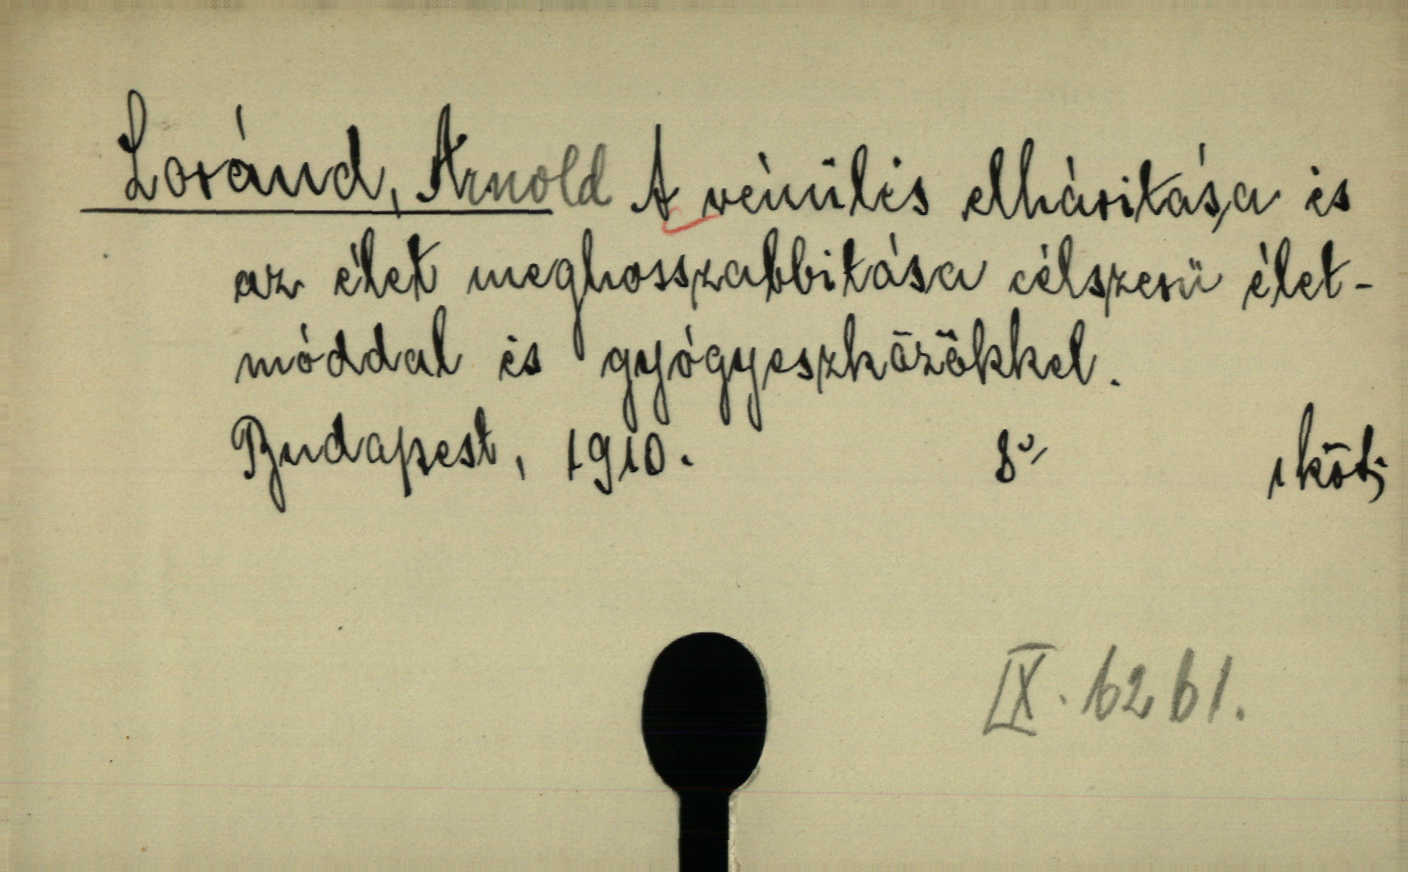 Loránd, Arnold A vénülés elhárítása és
az élet meghosszabbítása célszerü élet-
móddal és gyógyeszközökkel.
Budapest, 1910. 8º 1 köt.
IX. 6261.